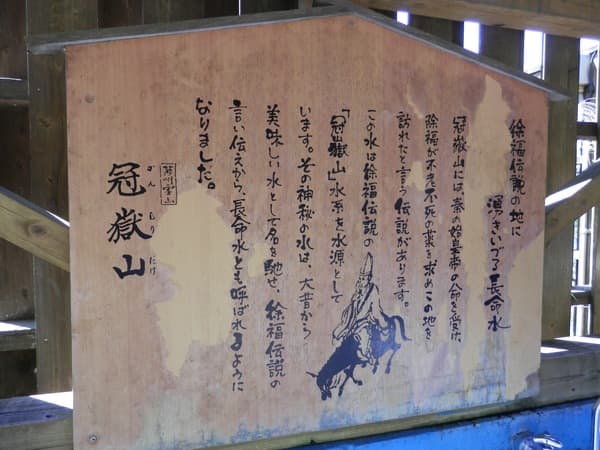 徐福伝説の地に
湧きいづる長命水
冠嶽山には、秦の始皇帝の命を受け、
徐福が不老不死の薬を求めこの地を
訪れたと言う伝説があります。
この水は徐福伝説の
「冠嶽山」水系を水源として
います。その神秘の水は、大昔から
美味しい水として名を馳せ、徐福伝説の
言い伝えから、長命水とも呼ばれるように
なりました。
冠嶽山
かんむりだけ